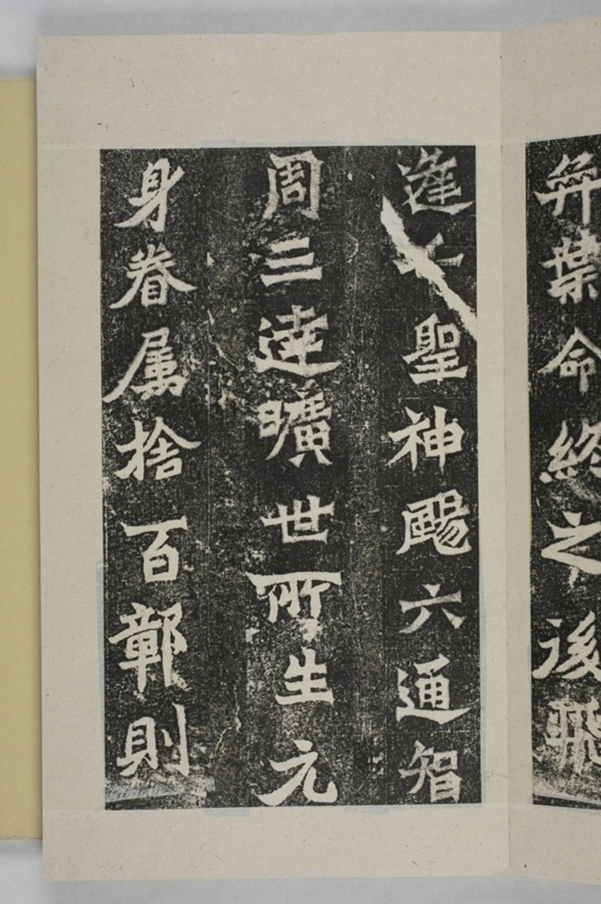 弈葉命終之後飛
逢千聖神颺六通智
周三達曠世所生元
身眷属捨百鄣則